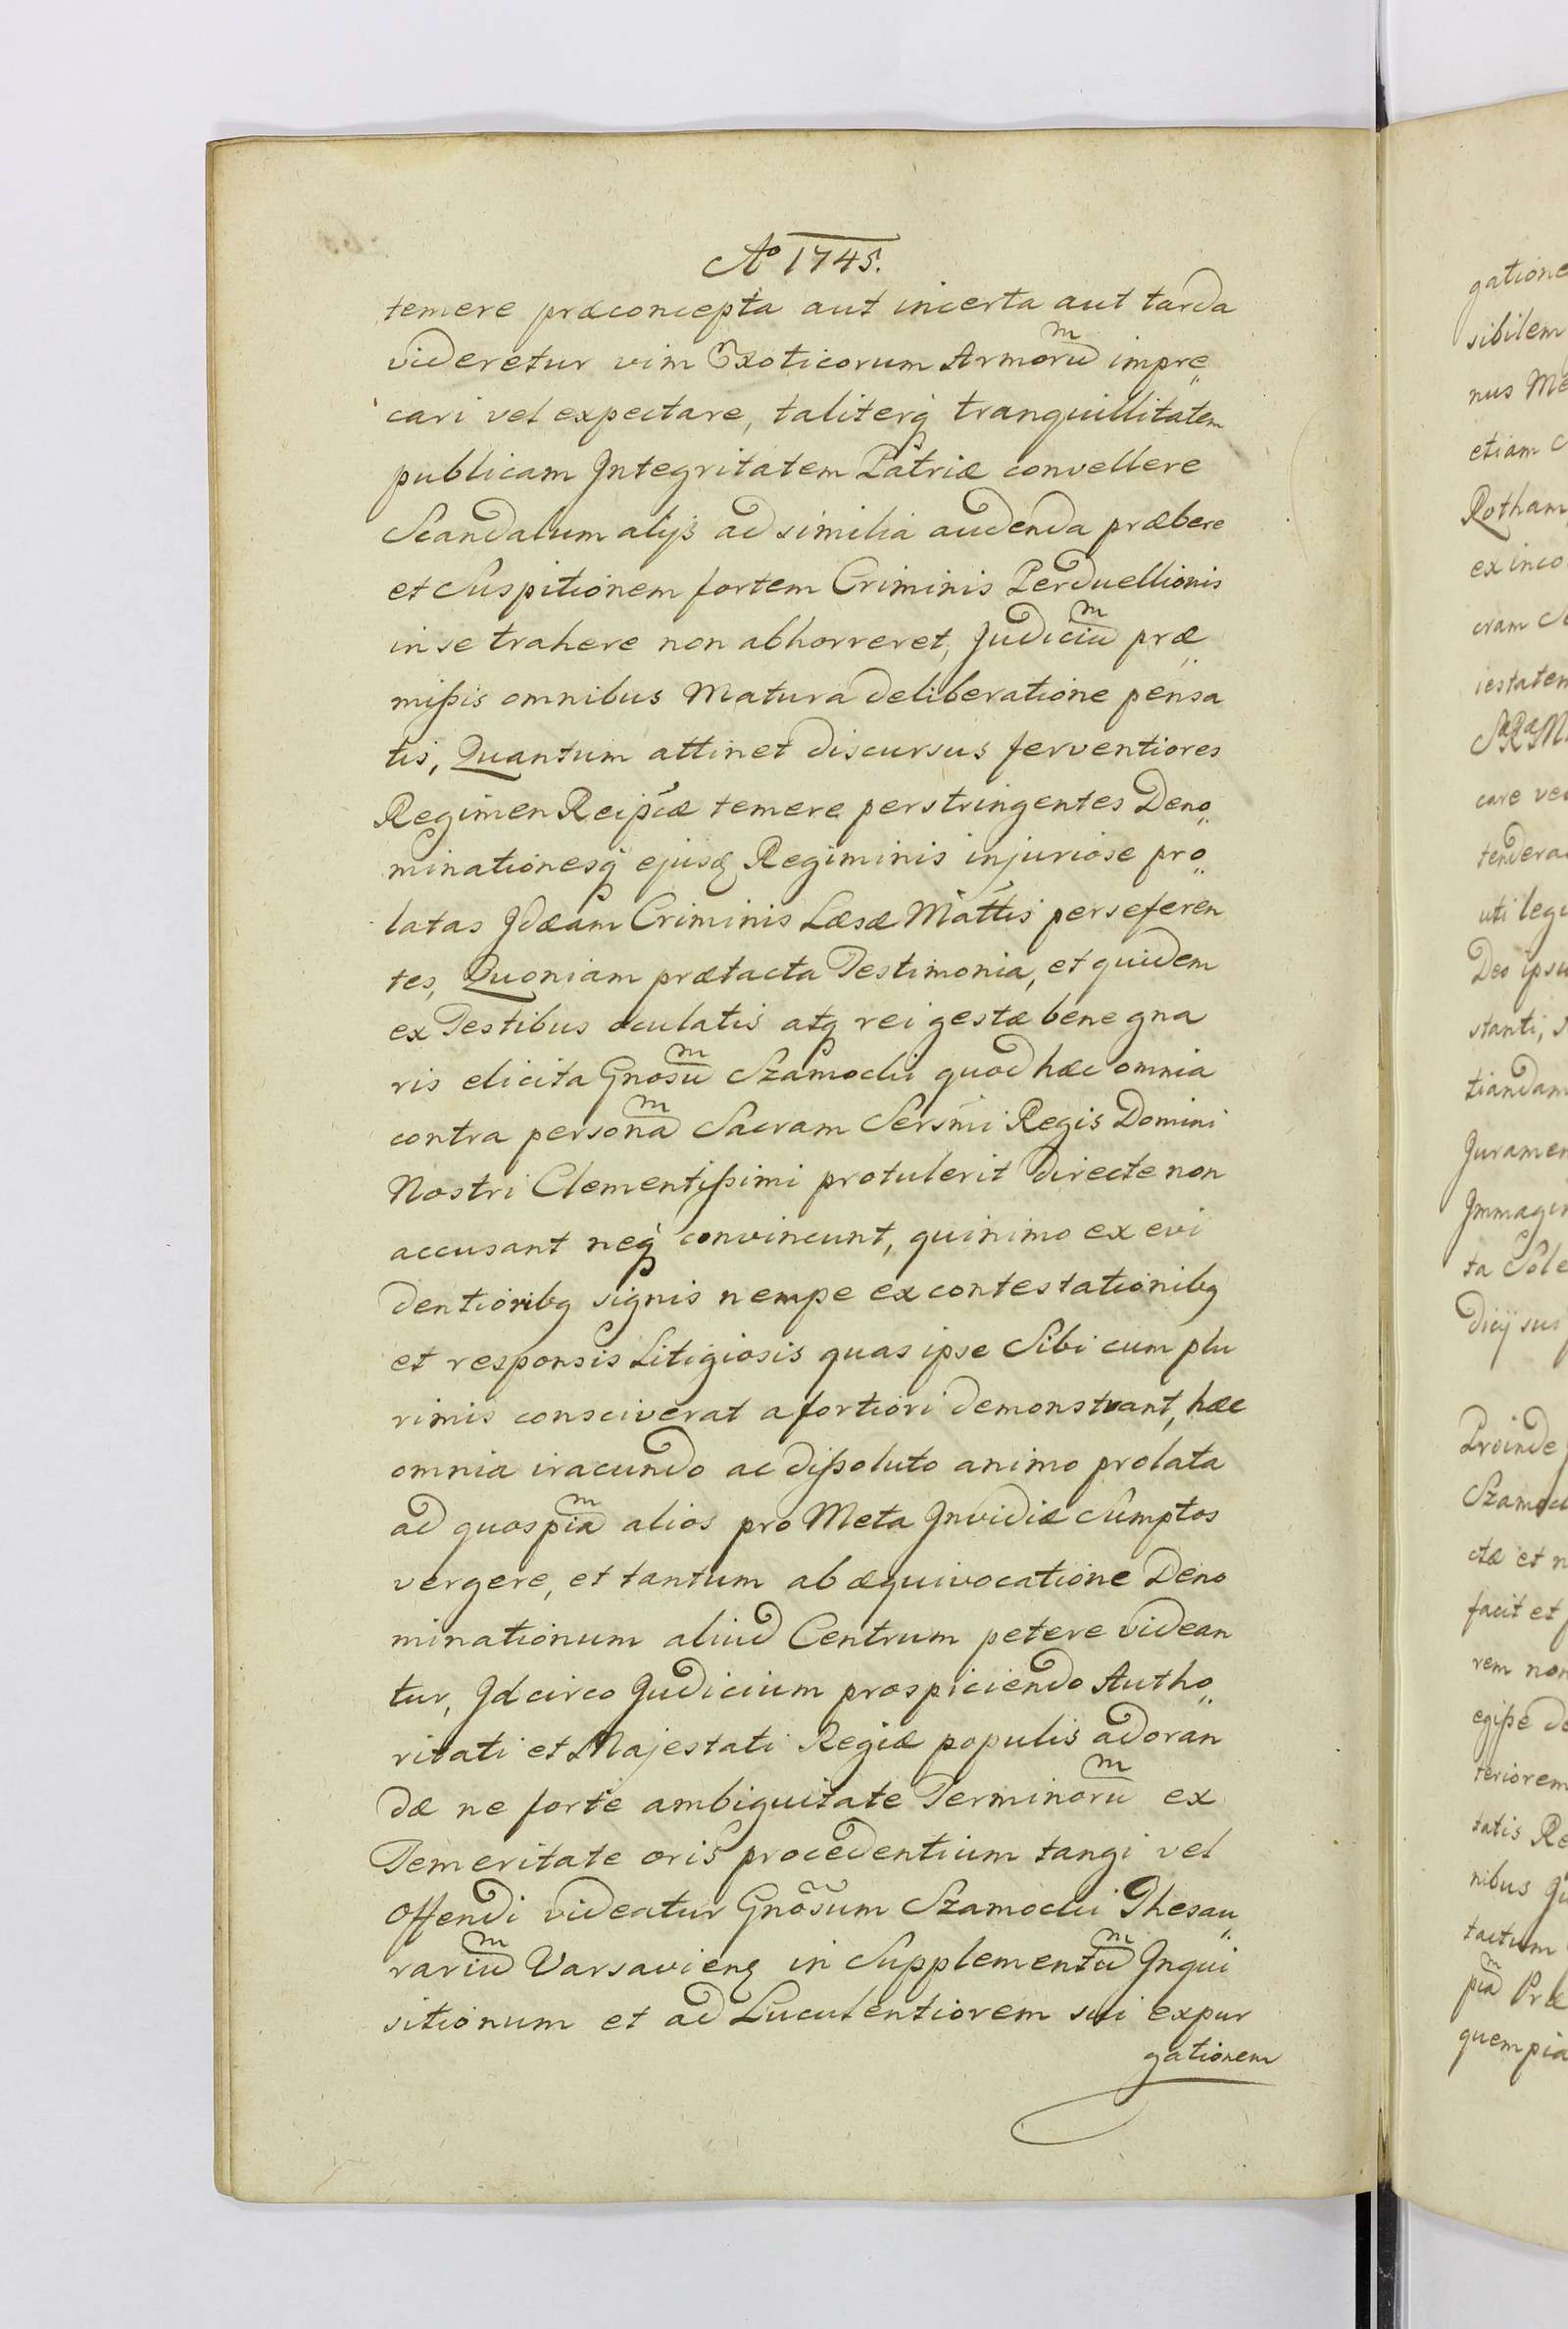 Aº 1745.
temere præconcepta aut incerta aut tarda
videretur vim Exoticorum Armorū impre„
cari vel expectare, taliterq tranquillitatem
publicam Integritatem Patriæ convellere
Scandalum alijs ad similia audenda præbere
et Suspitionem fortem Criminis Perduellionis
in se trahere non abhorreret, Judiciū præ„
mißis omnibus Matura deliberatione pensa
tis, Quantum attinet discursus ferventiores
Regimen Reipcæ temere perstringentes Deno„
minationesq ejusq Regiminis injuriose pro„
latas Idæam Criminis Læsæ Mattis perseferen
tes, Quoniam prætacta Testimonia, et quidem
ex Testibus oculatis atq rei gestæ bene gna
ris elicita Gnosū Szamocki quod hæc omnia
contra personā Sacram Sersmi Regis Domini
Nostri Clementißimi protulerit directe non
accusant neq convincunt, quinimo ex evi
dentioribq signis nempe ex contestationibq
et responsis Litigiosis quas ipse Sibi cum plu
rimis consciverat a fortiori demonstrant, hæc
omnia iracundo ac dißoluto animo prolata
ad quospiā alios pro Meta Invidiæ Sumptos
vergere, et tantum ab æquivocatione Deno
minationum aliud Centrum petere videan
tur, Idcirco Judicium prospiciendo Autho„
ritati et Majestati Regiæ populis adoran
dæ ne forte ambiguitate Terminorū ex
Temeritate oris procedentium tangi vel
offendi videatur Gnõsum Szamocki Thesau„
rariū Varsavienq in Supplementū Inqui
sitionum et ad Luculentiorem sui expur
gationem
gatione
sibilem
nus Me
etiam
Rotham
ex inco
cram
iestatem
care
tendera
uti legi
Deo ipsu
stanti,
tiandam
Juramen
Immagin
ta Sole
dicij sui
Proinde
Szamocki
ctæ et n
facit et
rem non
egiße de
teriorem
tatis Re
nibus
tactum
piā Præ
quempia